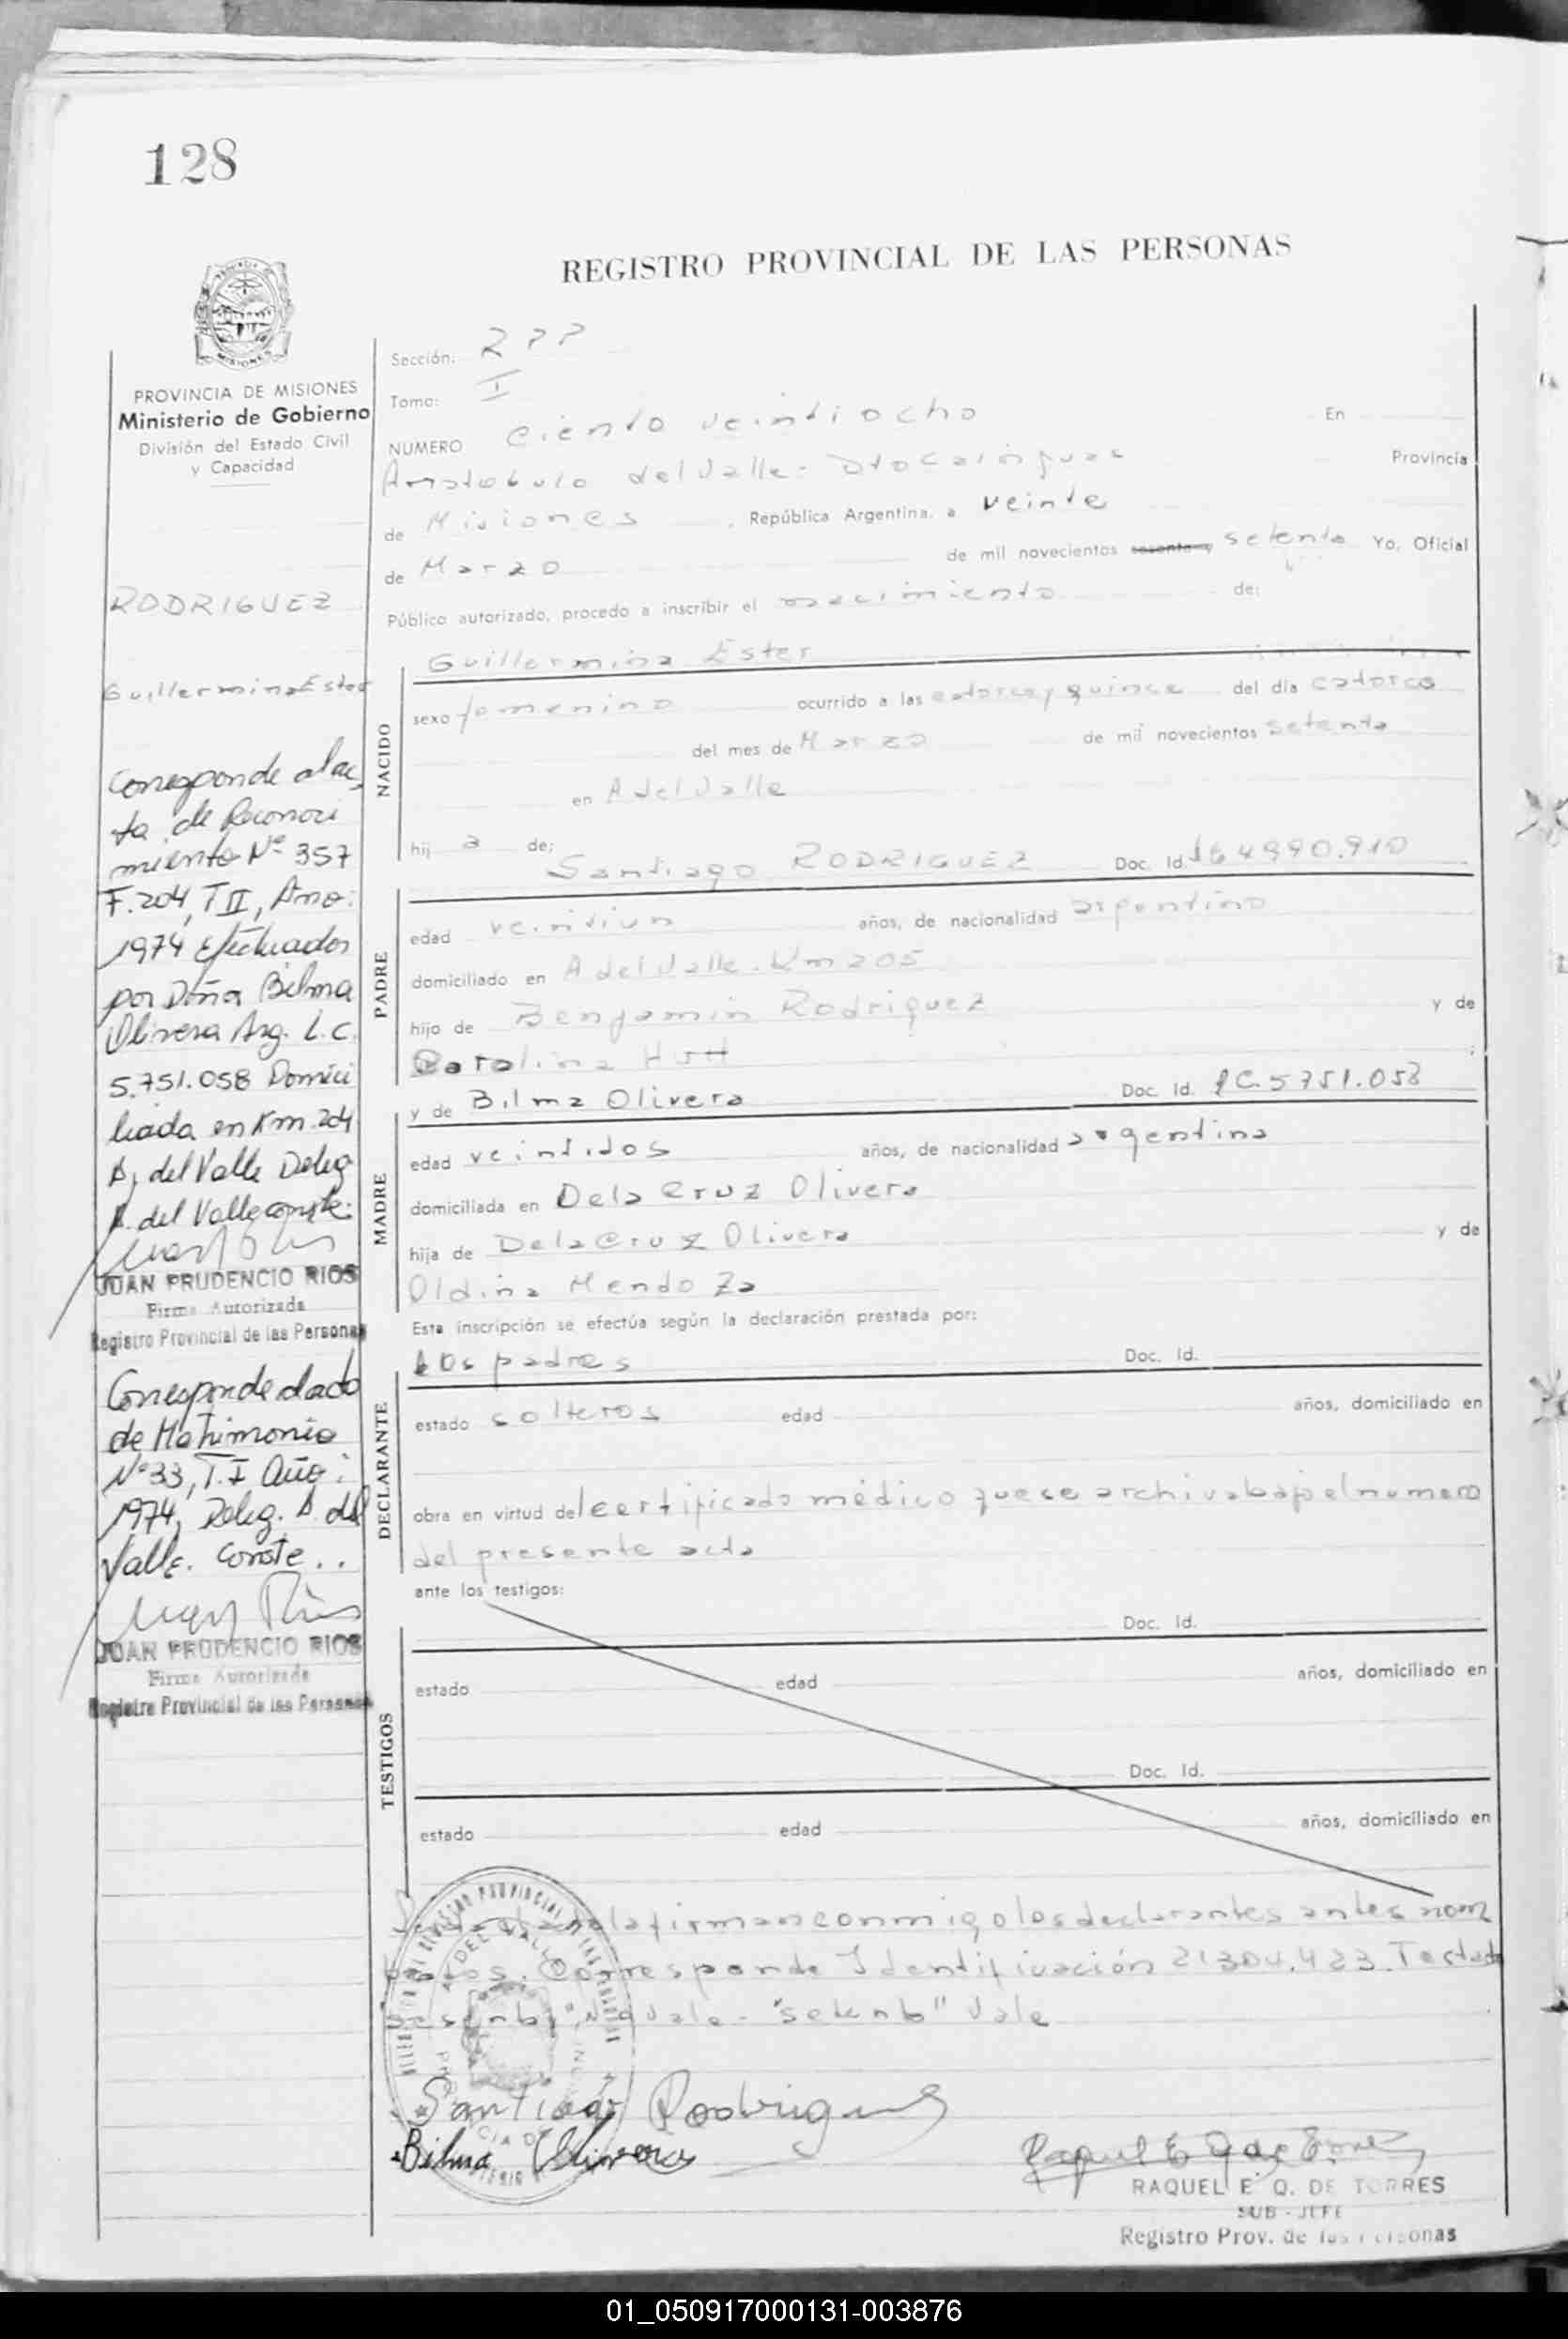 128
REGISTRO PROVINCIAL DE LAS PERSONAS
PROVINCIA DE MISIONES
Ministerio de Gobierno
División del Estado Civil
y Capacidad
RODRIGUEZ
Guillermina Ester
Corresponde al ac
ta de Reconoci
miento Nº 357
F. 204, T II, Año:
1974 efectuados
por Doña Bilma
Olivera Arg. L.C.
5.751.058 Domici
liada en Km. 204
A. del Valle Deleg
A. del Valle conste.
JUAN PRUDENCIO RIOS
Firma Autorizada
Registro Provincial de las Personas
Corresponde
de Matrimonio
Nº 33, T. I Año:
1974, Deleg. A. del
Valle. Conste..
JUAN PRUDENCIO RIOS
Firma Autorizada
Registro Provincial de las Personas
Sección: 2??
Tomo: I
NUMERO Ciento veintiocho En
Aristobulo del Valle - Dto Cainguas Provincia
de Misiones, República Argentina, a veinte
de Marzo de mil novecientos sesenta y setenta Yo, Oficial
Público autorizado, procedo a inscribir el nacimiento de:
Guillermina Ester
NACIDO
sexo femenino ocurrido a las catorce y quince del día catorce
del mes de Marzo de mil novecientos setenta
en A del Valle
hij a de:
Santiago RODRIGUEZ Doc. Id.
PADRE
edad veintiun años, de nacionalidad argentino
domiciliado en A del Valle. Km 205
hijo de Benjamin Rodriguez y de
Carolina Hutt
y de Bilma Olivera Doc. Id. LC. 5751.058
MADRE
edad veintidos años, de nacionalidad argentina
domiciliada en Dela Cruz Olivera
hija de Dela Cruz Olivera y de
Oldina Mendoza
Esta inscripción se efectúa según la declaración prestada por:
Los padres Doc. Id.
DECLARANTE
estado solteros edad años, domiciliado en
obra en virtud del certificado médico que se archiva bajo el numero
del presente acta
ante los testigos:
Doc. Id.
TESTIGOS
estado edad años, domiciliado en
Doc. Id.
estado edad años, domiciliado en
la firman conmigo los declarantes antes nom
brados. Corresponde Identificación 21304.423. Testado
"sesenta" No vale - "setenta" Vale
Santiago Rodriguez
Bilma Olivera
RAQUEL E. Q. DE TORRES
SUB - JEFE
Registro Prov. de las Personas
01_050917000131-003876